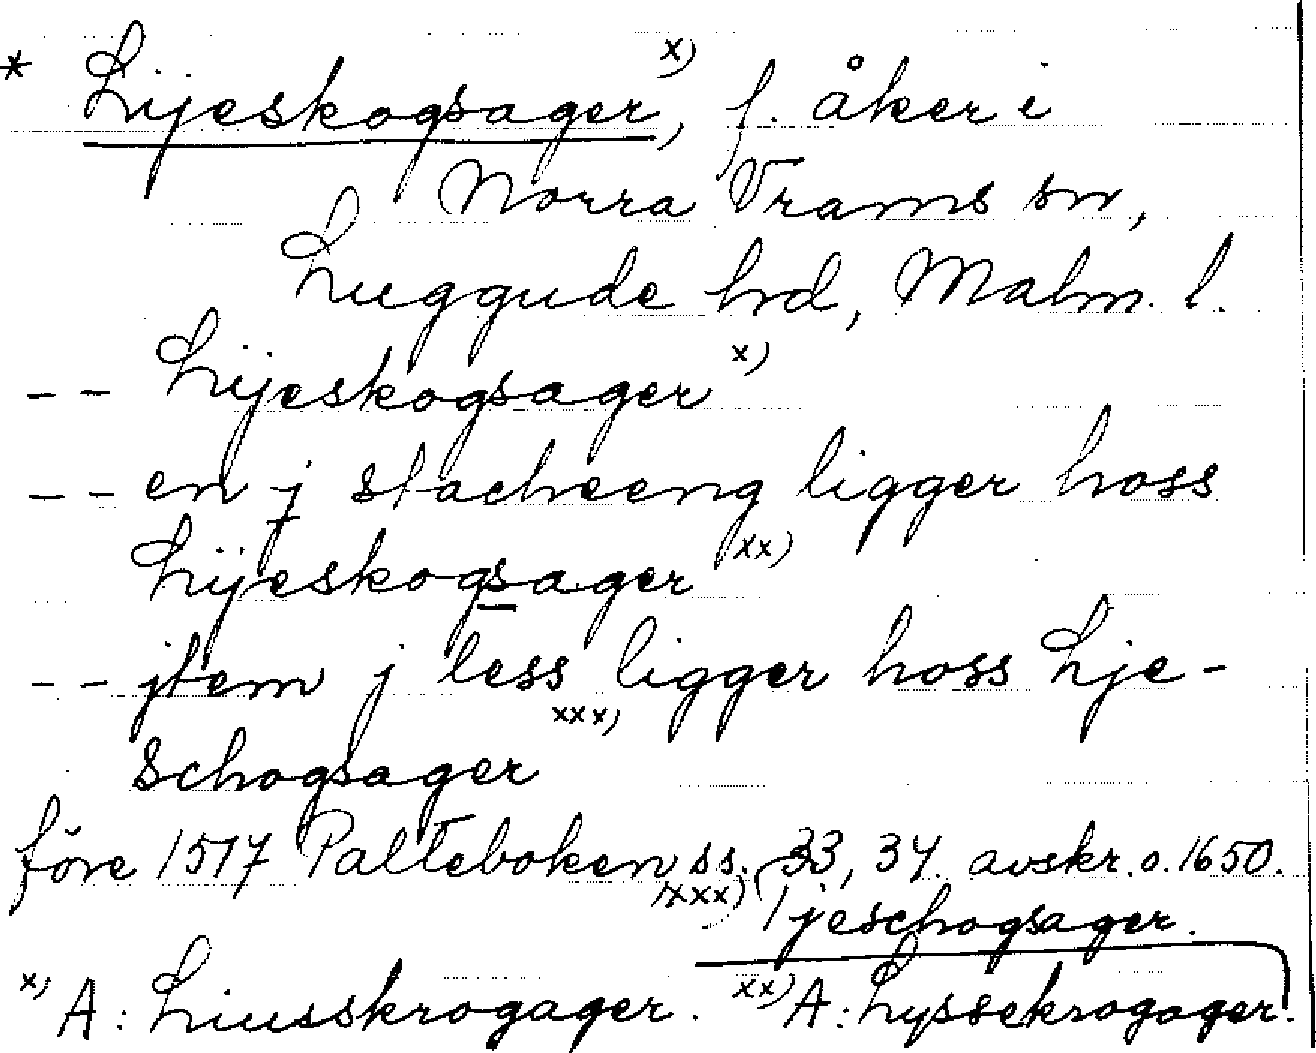 * Lijeskogsager x), f. åker i
Norra Vrams sn,
Luggude hd, Malm. l.
-- Lijeskogsager x)
-- en j stacheeng ligger hoss
Lijeskogsager xx)
-- jtem j less ligger hoss Lje-
schogsager xxx)
före 1517 Palteboken ss. 33, 34. avskr. o. 1650.
xxx) ljeschogsager.
x) A: Liusskrogager. xx) A: Lyssekrogager.